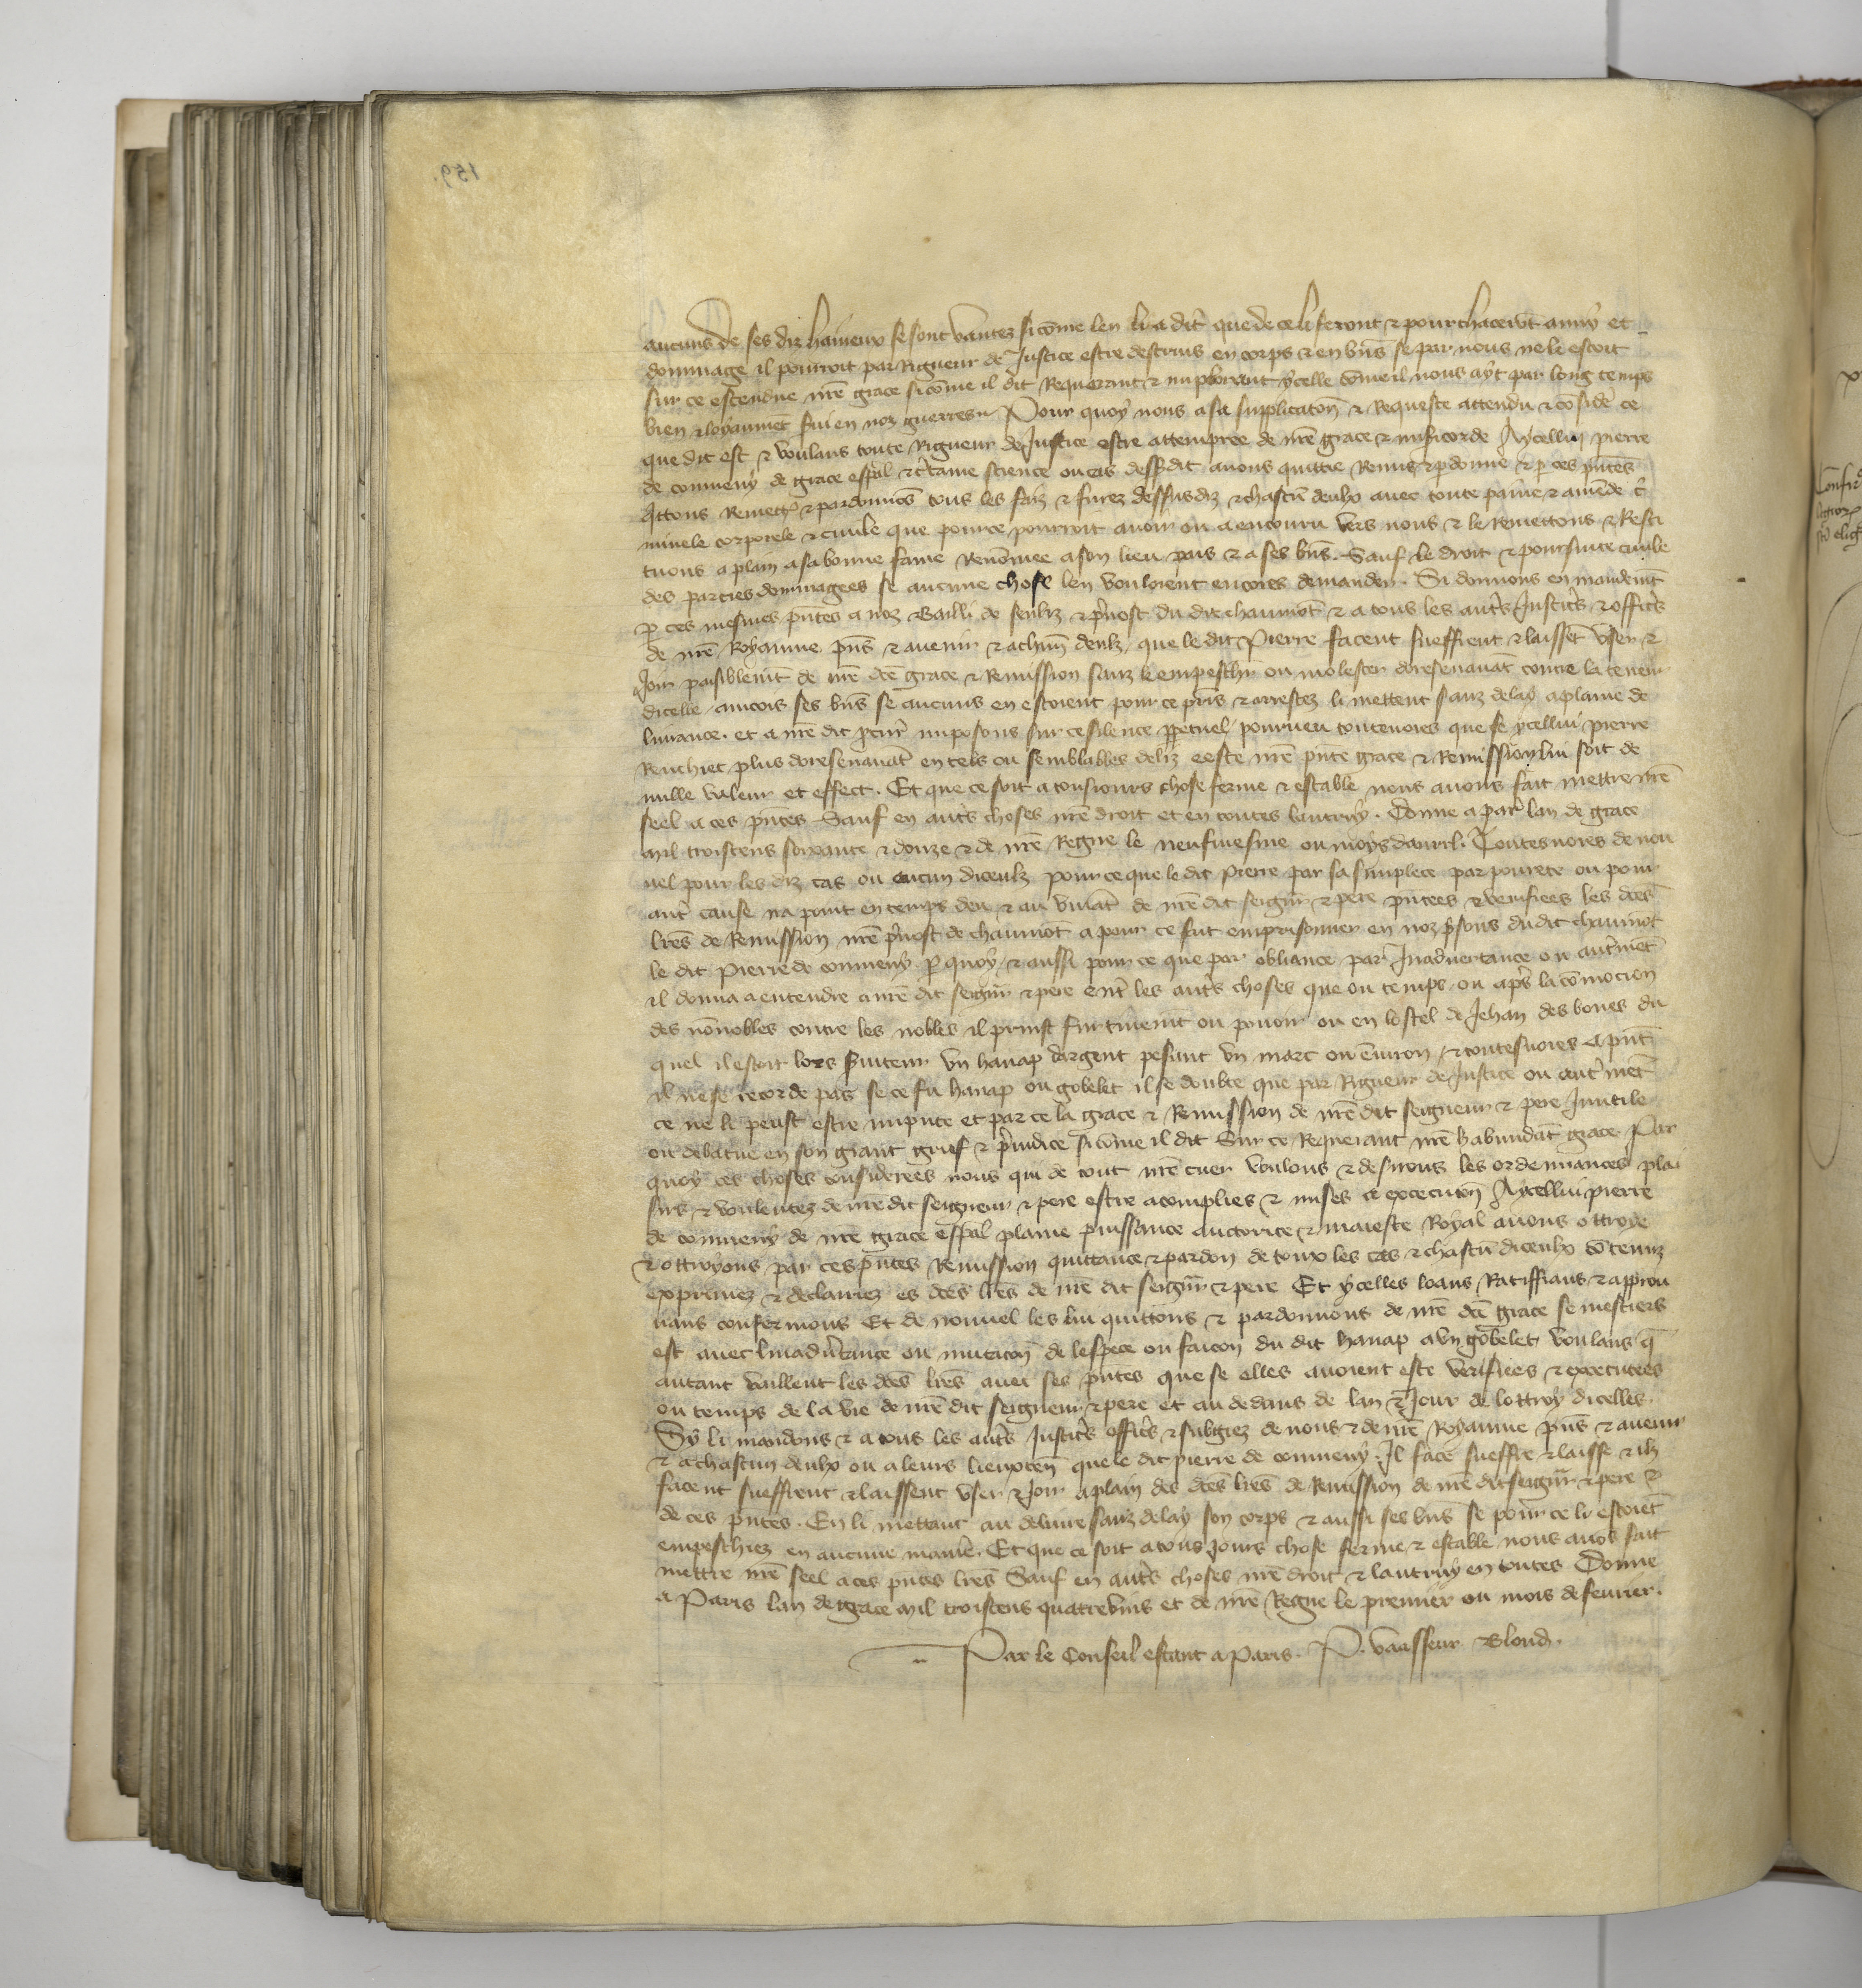 159.
aucuns de ses diz haineux se sont vantez si cōme len li a dit que de ce li feront & pourchaceront anuy et
dommage il pourroit par Rigueur de Justice estre destruis en corps & en biēs se par nous ne li estoit
sur ce estendue nrē grace si cōme il dit Requerant & implorant ycelle cōme il nous ayt par long temps
bien & loyaumēt sui en noz guerres Pour quoy nous a sa supplicatōn & Requeste attendu & cōsideré ce
que dit est & voulans toute Rigueur de Justice estre attempree de nrē grace & misēicorde Aycellui pierre
de conmeny de grace esp̄al & c̄taine science ou cas dessusdit auons quittie Remis & p̄donné & p ces pn̄tes
quittons Remett̄ & pardonnōs tous les faiz & furez dessusdiz & chascū deulx auec toute paine & amēde c̄ri
minele corporele & ciuile que pour ce pourroit auoir ou a encouru vers nous & le Remettons & Resti
tuons a plain a sa bonne fame Renōmee a son lieu pais & a ses biēs. Sauf le droit & poursuite ciuile
des parties dommagees se aucune chose len vouloient encores demander. Si donnons en mandemēt
p ces mesmes pn̄tes a noz Bailli de senliz & p̄uost du dit chaumōt & a tous les aut̄s Justic̄s & offic̄s
de nrē Royaume pn̄s & auenir & a chūn deulz que le dit Pierre facent sueffrent & laissēt vser &
Joir paisiblemēt de nrē dc̄e grace & Remission sanz le empeschr̄ ou molester doresenauāt contre la teneur
dicelle ancois ses biēs se aucuns en estoient pour ce pris & arrestez li mettent sanz delay a plaine de
liurance. et a nrē dit pcur̄ imposons sur ce silence ppetuel pourueu toutenoies que se ycellui pierre
Renchiet plus doresenauāt en telx ou semblables deliz ceste nrē pn̄te grace & Remission lui soit de
nulle valeur et effect. Et que ce soit a tousiours chose ferme & estable nous auons fait mettre nrē
seel a ces pn̄tes Sauf en aut̄s choses nrē droit et en toutes lautruy. Donne a par̄ lan de grace
mil troiscens soixante & douze & de nrē Regne le neufuiesme ou moys dauril. Toutesuoies de nou
uel pour les diz cas ou aucun diceulz pour ce que le dit pierre par sa simplece par pourete ou pour
aut̄ cause na point en temps deu & au viuāt de nrē dit seign̄r & pere pn̄tees & verifiees les dc̄es
lr̄es de Remission nrē p̄uost de chaumōt a pour ce fait emprisonner en noz p̄sons du dit chaumōt
le dit Pierre de conmeny p quoy & aussi pour ce que par obliance par Inaduertance ou aut̄mēt
il donna a entendre a nrē dit seign̄r & pere ent̄ les aut̄s choses que ou temps ou ap̄s la cōmocion
des nōnobles contre les nobles il prinst furtiuemēt ou pouoir ou en lostel de Jehan des boues du
quel il estoit lors s̄uiteur vn hanap dargent pesant vn marc ou enuiron / & toutesuoies a pn̄t
il ne se recorde pas se ce fu hanap ou gobelet il se doubte que par Rigueur de Justice ou aut̄mēt
ce ne li peust estre impute et par ce la grace & Remission de nrē dit seigneur & pere Inutile
ou debatue en son grant grief & p̄iudice si cōme il dit Sur ce Requerant nrē habundāt grace. Par
quoy ces choses considerees nous qui de tout nrē cuer voulons & desirons les ordennances plai
sirs & voulentez de nrē dit seigneur & pere estre acomplies & mises a execucōn Aycellui pierre
de conmeny de nrē grace esp̄al plaine puissance auctorite & maieste Royal auons ottroye
& ottroyons par ces pn̄tes Remission quittance & pardon de touz les cas & chascū diceulx cōtenuz
exprimez & declairiez es dc̄es lr̄es de nrē dit seign̄r & pere Et ycelles loans Ratiffians & approu
uans confermons Et de nouuel les lui quittons & pardonnons de nrē dc̄e grace se mestiers
est auec linadūtance ou mutacōn de lespece ou facon du dit hanap a vn gobelet voulans q̄
autant vaillent les dc̄es lr̄es auec ces pn̄tes que se elles auoient este verifiees & executees
ou temps de la vie de nrē dit seigneur & pere et au dedans de lan & Jour de lottroy dicelles.
Sy li mandons & a tous les aut̄s Justic̄s offic̄s & subgiez de nous & de nrē Royaume pn̄s & auenir
& a chascun deulx ou a leurs lieuxten̄ que le dit pierre de conmeny. Il face sueffre & laisse & ilz
facent sueffrent & laissent vser & Joir a plain des dc̄es lr̄es de Remission de nrē dit seign̄r & pere &
de ces pn̄tes. En li mettant au deliure sanz delay son corps & aussi ses biēs se pour ce li estoiēt
empeschiez en aucune manie. Et que ce soit a tous Jours chose ferme & estable nous auōs fait
mettre nrē seel a ces pn̄tes lr̄es Sauf en aut̄s choses nrē droit & lautruy en toutes Donne
a Paris lan de grace mil troiscens quatrevins et de nrē Regne le premier ou mois de feurier.
Par le Conseil estant a Paris. P. vaasseur Blond.